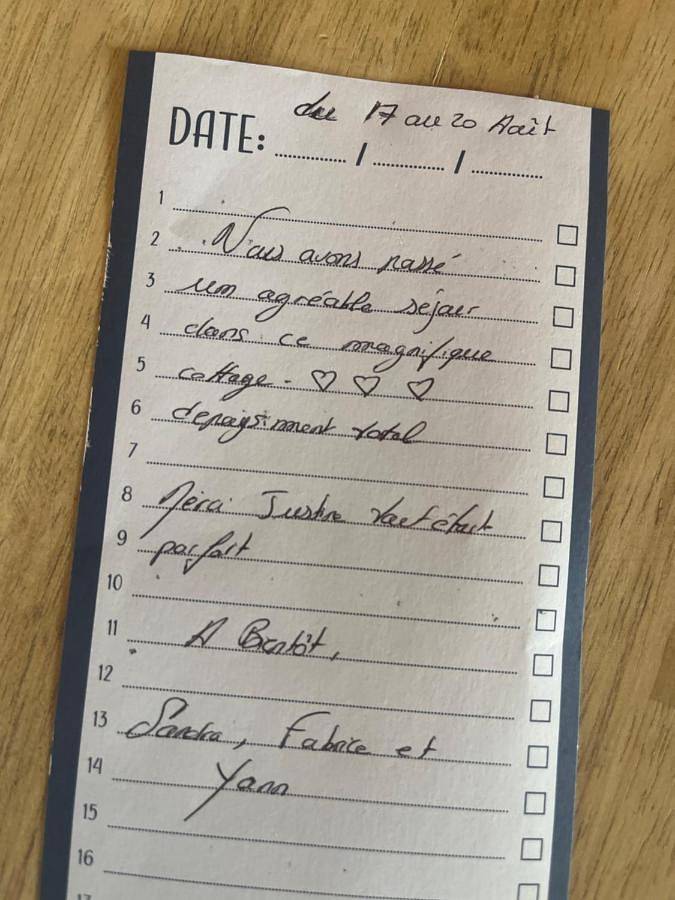 du 17 au 20 Août
DATE: ........ / ........ / ........
1
2 Nous avons passé
3 un agréable séjour
4 dans ce magnifique
5 cottage - ♡ ♡ ♡
6 depaysement total
7
8 Merci Justine tout était
9 parfait
10
11 A Bientôt,
12
13 Sandra, Fabrice et
14 Yann
15
16
17